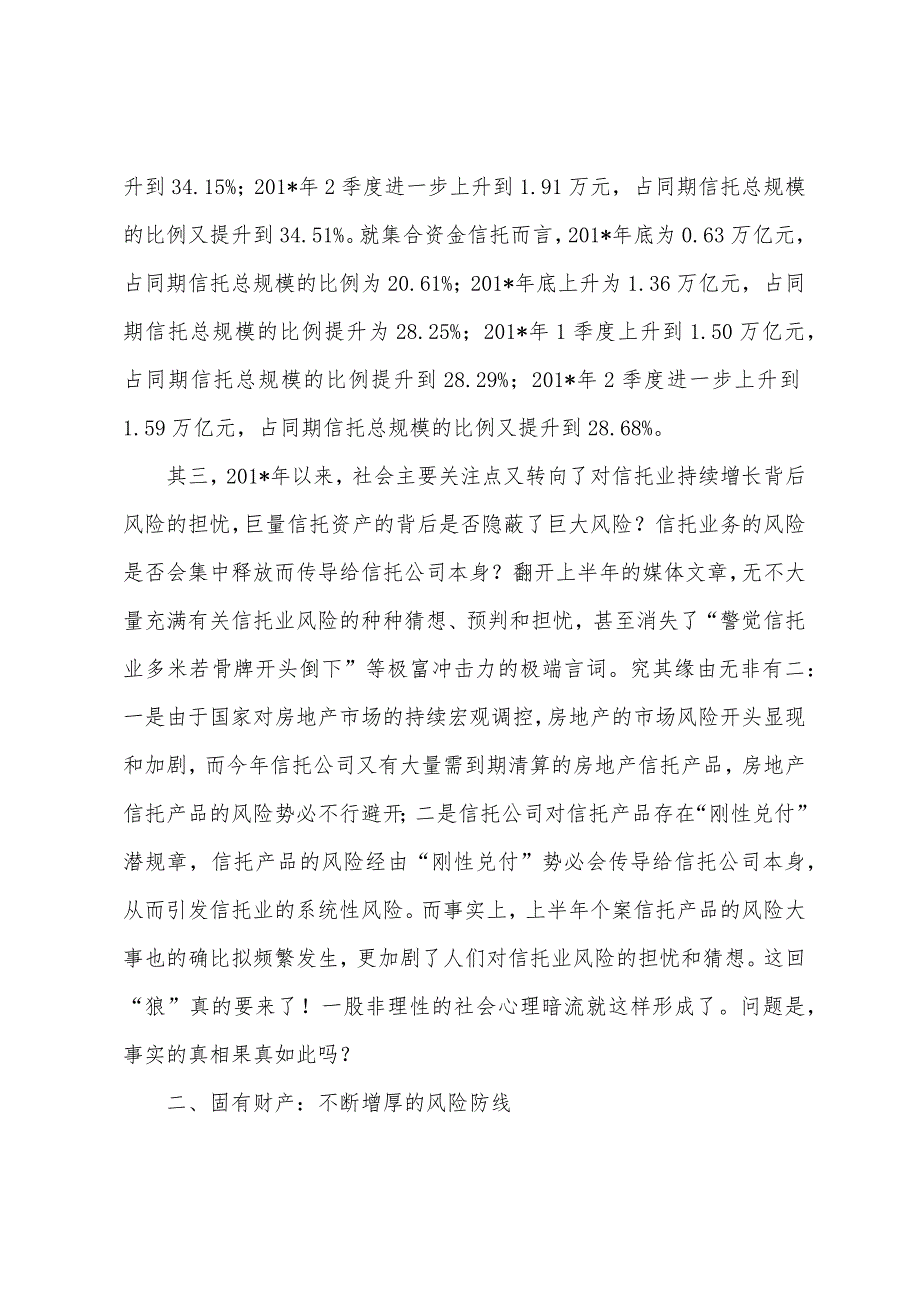 升到 34.15%；201*年 2 季度进一步上升到 1.91 万元，占同期信托总规模
的比例又提升到 34.51%。就集合资金信托而言，201*年底为 0.63 万亿元，
占同期信托总规模的比例为 20.61%；201*年底上升为 1.36 万亿元，占同
期信托总规模的比例提升为 28.25%；201*年 1 季度上升到 1.50 万亿元，
占同期信托总规模的比例提升到 28.29%；201*年 2 季度进一步上升到
1.59 万亿元，占同期信托总规模的比例又提升到 28.68%。
其三，201*年以来，社会主要关注点又转向了对信托业持续增长背后
风险的担忧，巨量信托资产的背后是否隐蔽了巨大风险？信托业务的风险
是否会集中释放而传导给信托公司本身？翻开上半年的媒体文章，无不大
量充满有关信托业风险的种种猜想、预判和担忧，甚至消失了“警觉信托
业多米若骨牌开头倒下”等极富冲击力的极端言词。究其缘由无非有二：
一是由于国家对房地产市场的持续宏观调控，房地产的市场风险开头显现
和加剧，而今年信托公司又有大量需到期清算的房地产信托产品，房地产
信托产品的风险势必不行避开；二是信托公司对信托产品存在“刚性兑付”
潜规章，信托产品的风险经由“刚性兑付”势必会传导给信托公司本身，
从而引发信托业的系统性风险。而事实上，上半年个案信托产品的风险大
事也的确比拟频繁发生，更加剧了人们对信托业风险的担忧和猜想。这回
“狼”真的要来了！一股非理性的社会心理暗流就这样形成了。问题是，
事实的真相果真如此吗？
二、固有财产：不断增厚的风险防线